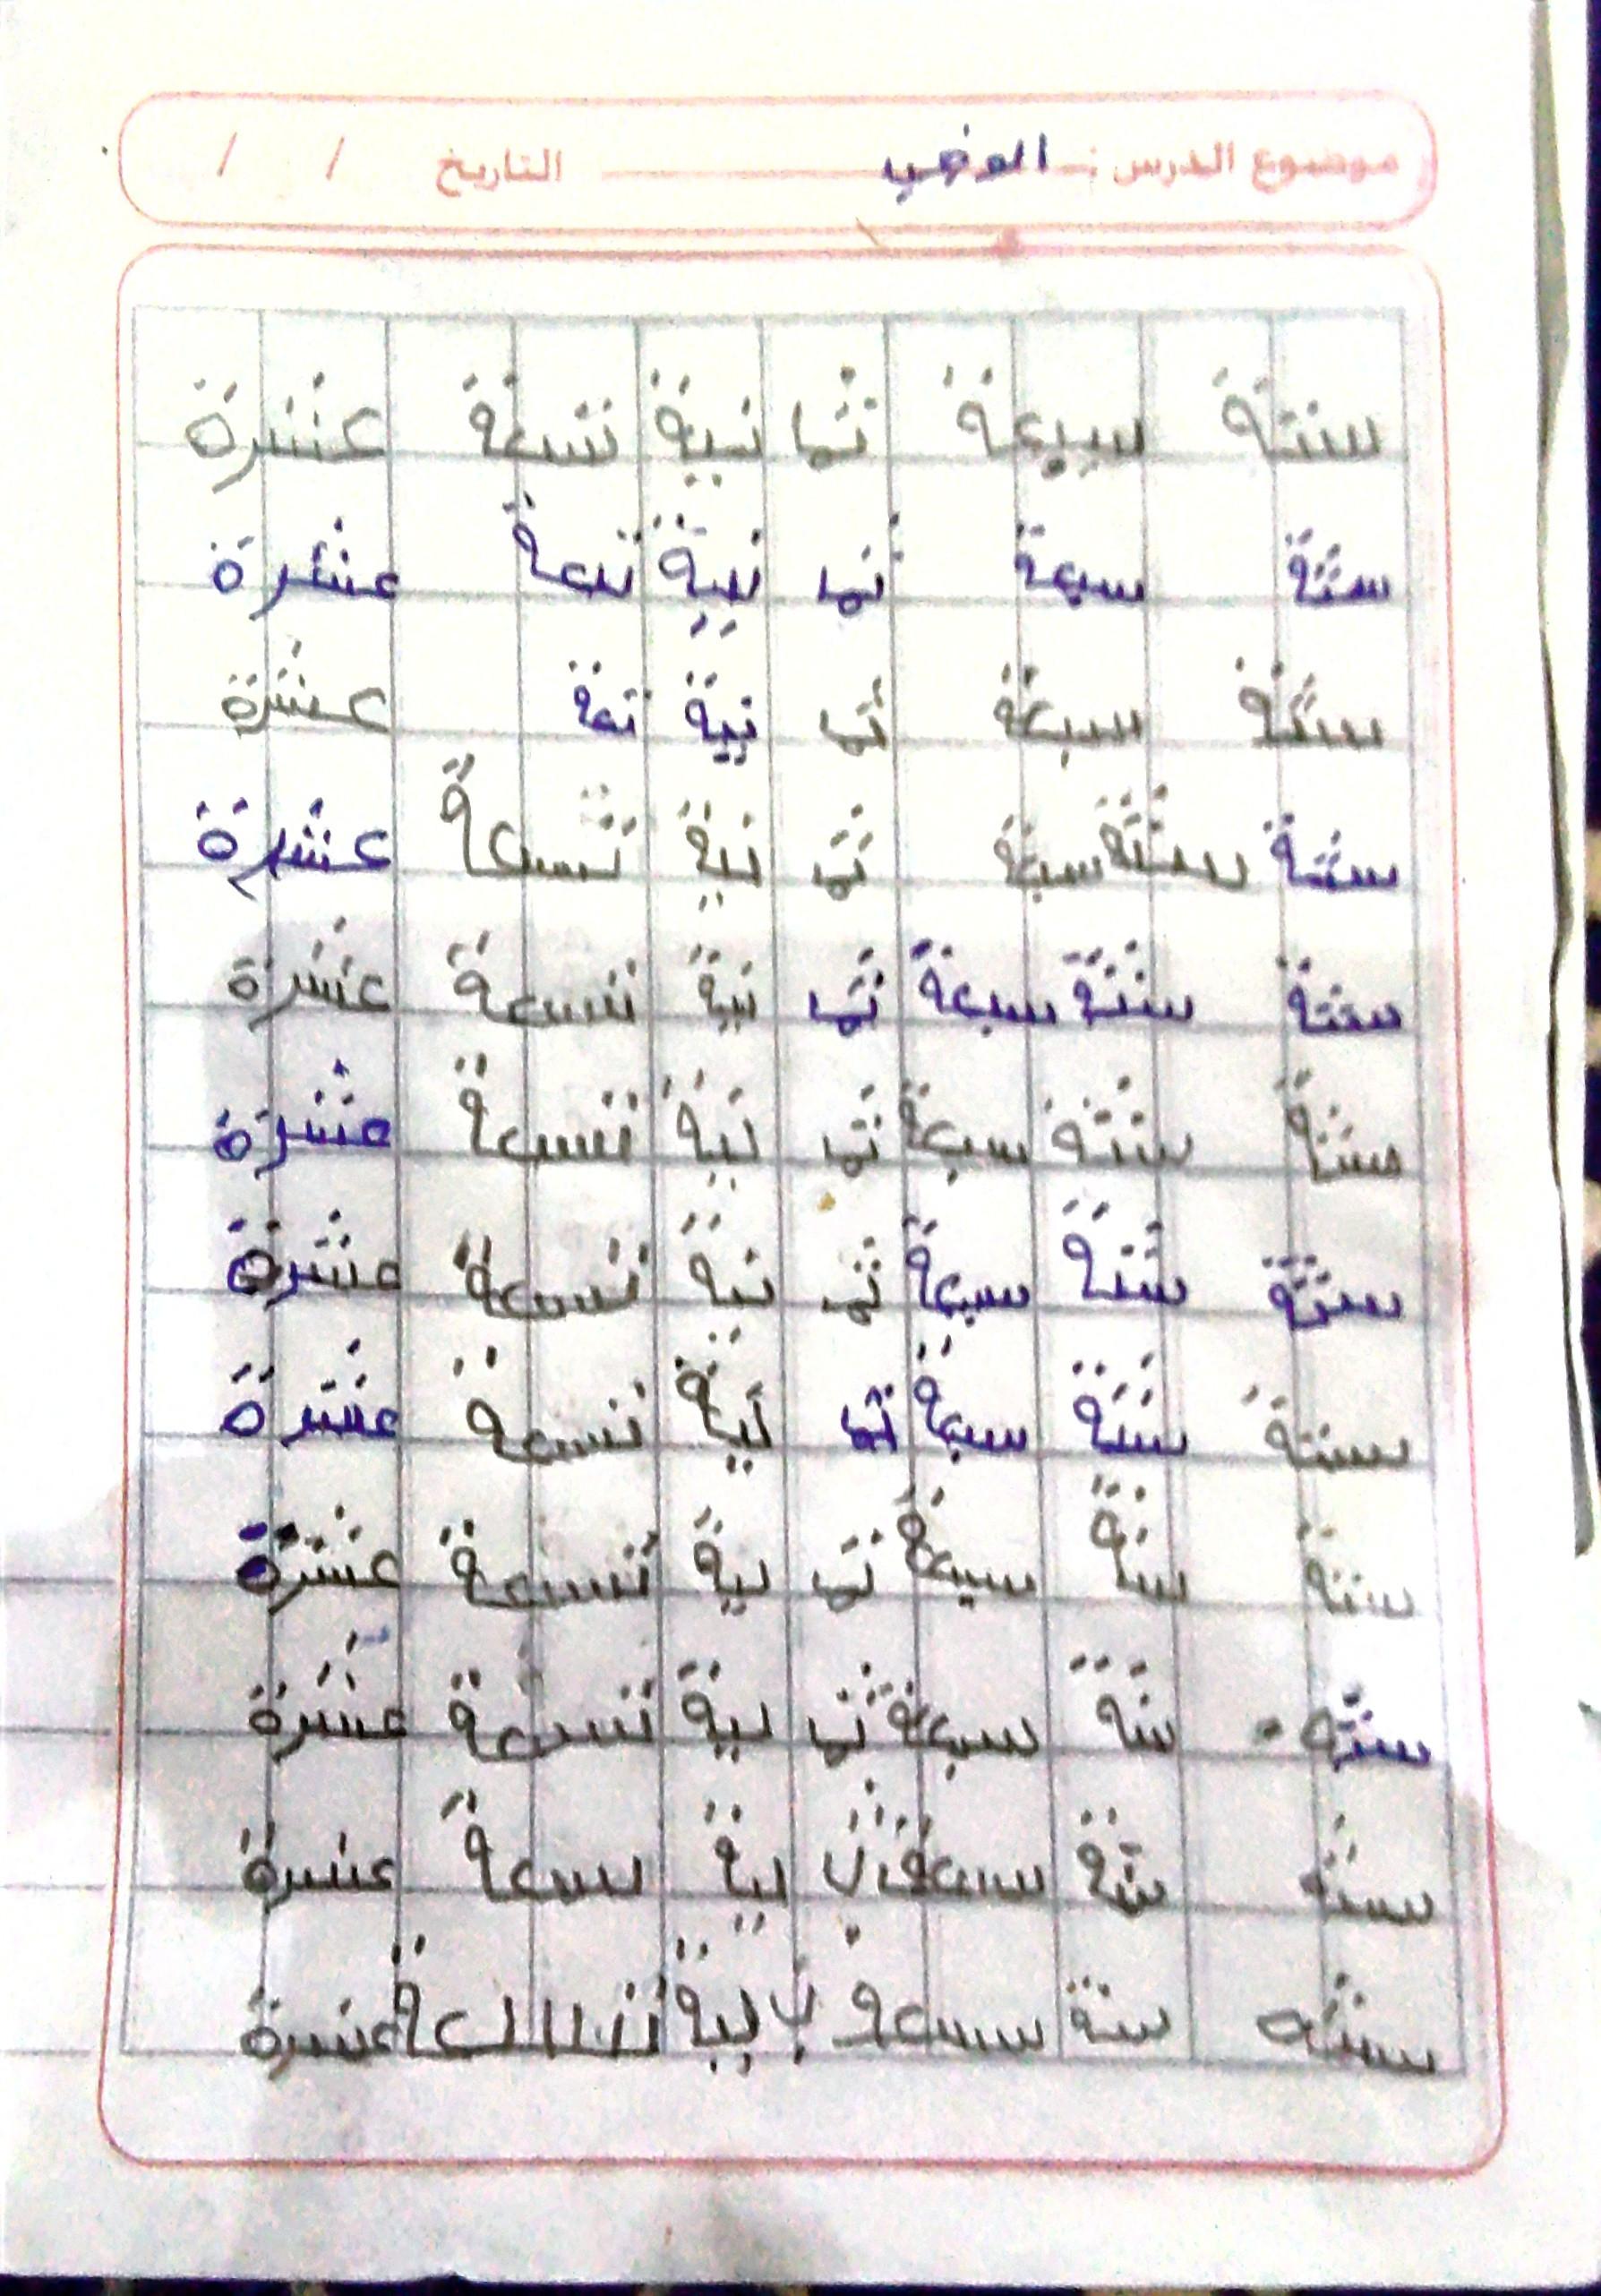 موضوع الدرس : التاريخ / /
ستة سبعة ثما نية تسعة عشرة
ستة سبعة ثما نية تعة عشرة
ستة سبعة ثما نية تعة عشرة
ستة ستة سبعة ثما نية تسعة عشرة
ستة ستة سبعة ثما نية تسعة عشرة
ستة ستة سبعة ثما نية تسعة عشرة
ستة ستة سبعة ثما نية تسعة عشرة
ستة ستة سبعة ثما نية تسعة عشرة
ستة ستة سبعة ثما نية تسعة عشرة
سته ستة سبعة ثما نية تسعة عشرة
ستة ستة سبعة نية تسعة عشرة
سته ستة سبعة نية عشرة